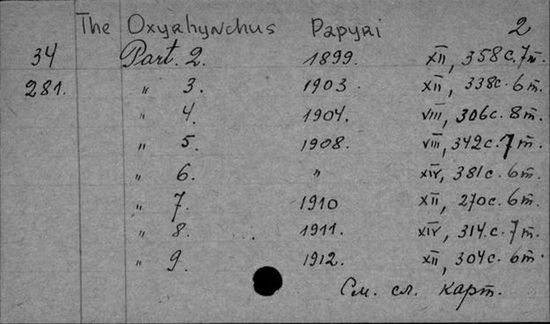 The Oxyrhynchus Papyri 2
34 Part. 2. 1899. XII, 358 с. 7 т.
281. " 3. 1903. XII, 338 с. 6 т.
" 4. 1904. VIII, 306 с. 8 т.
" 5. 1908. VIII, 342 с. 7 т.
" 6. " XIV, 381 с. 6 т.
" 7. 1910 XII, 270 с. 6 т.
" 8. 1911. XIV, 314 с. 7 т.
" 9. 1912. XII, 304 с. 6 т.
См. сл. карт.